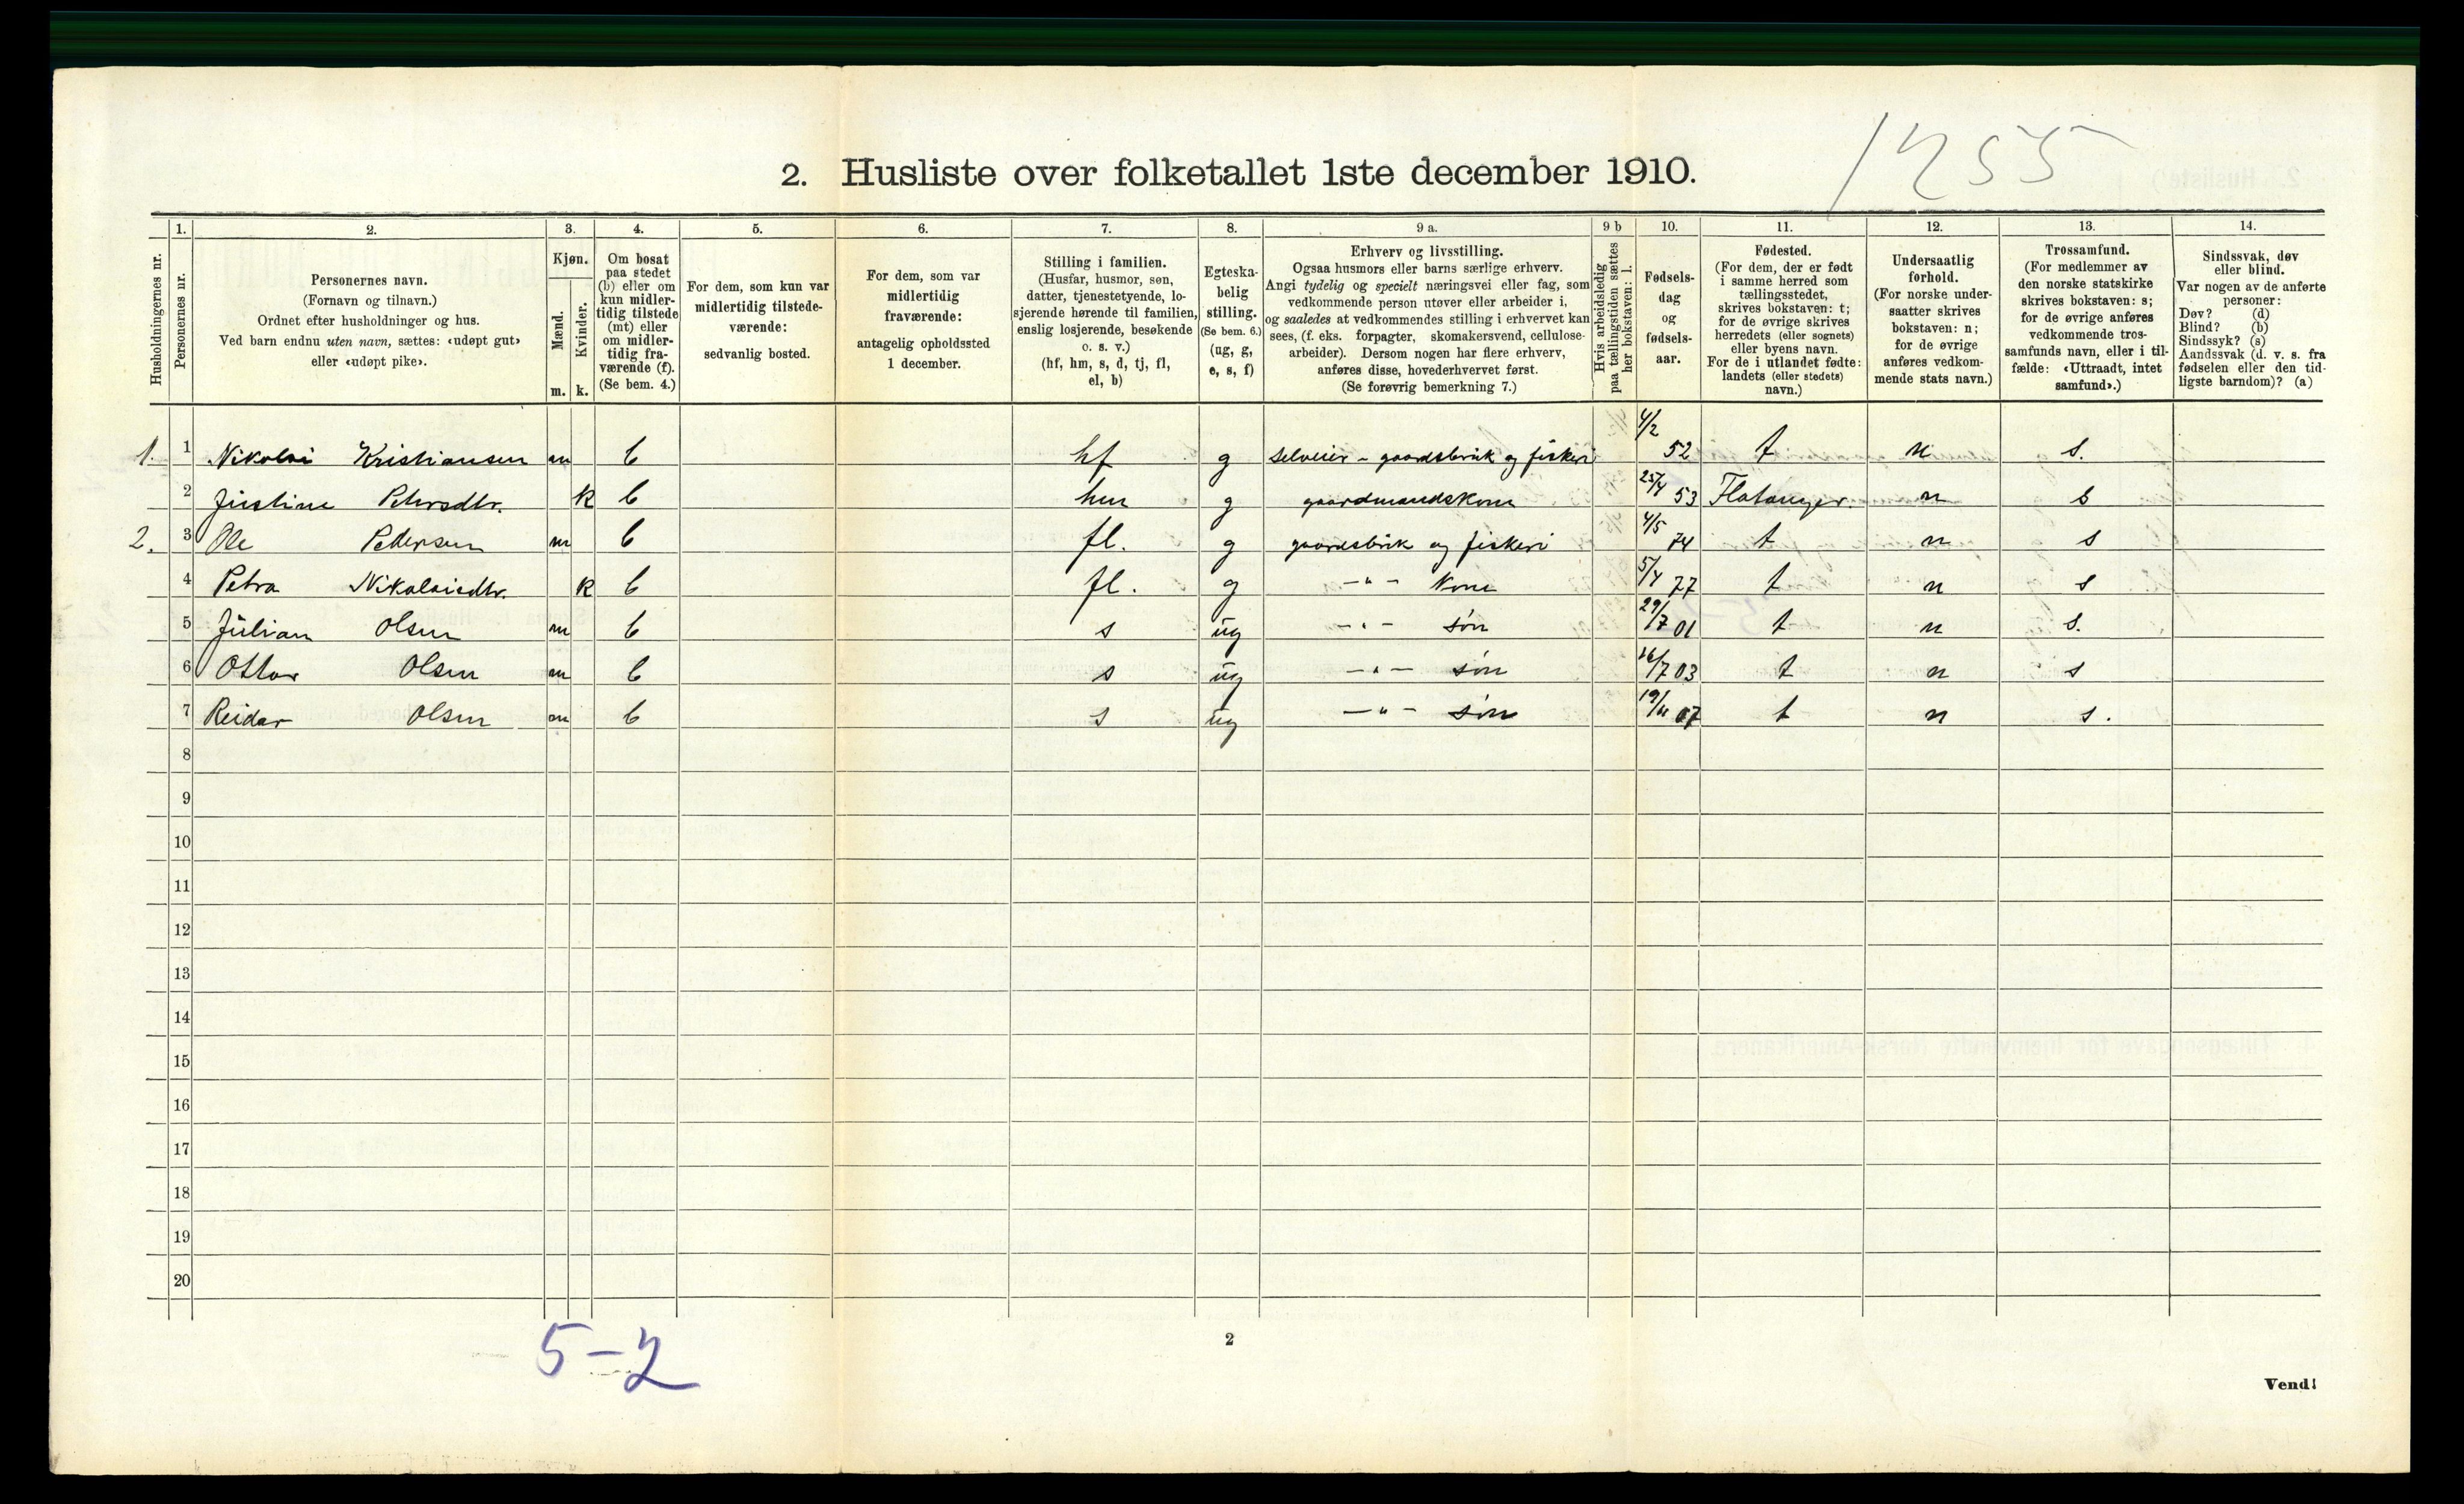 1255
2. Husliste over folketallet 1ste december 1910.
Husholdningernes nr.
1.
Personernes nr.
2.
Personernes navn.
(Fornavn og tilnavn.)
Ordnet efter husholdninger og hus.
Ved barn endnu uten navn, sættes: «udøpt gut»
eller «udøpt pike».
3.
Kjøn.
Mænd.
Kvinder.
m. k.
4.
Om bosat
paa stedet
(b) eller om
kun midler-
tidig tilstede
(mt) eller
om midler-
tidig fra-
værende (f).
(Se bem. 4.)
5.
For dem, som kun var
midlertidig tilstede-
værende:
sedvanlig bosted.
6.
For dem, som var
midlertidig
fraværende:
antagelig opholdssted
1 december.
7.
Stilling i familien.
(Husfar, husmor, søn,
datter, tjenestetyende, lo-
sjerende hørende til familien,
enslig losjerende, besøkende
o. s. v.)
(hf, hm, s, d, tj, fl,
el, b)
8.
Egteska-
belig
stilling.
(Se bem. 6.)
(ug, g,
e, s, f)
9 a.
Erhverv og livsstilling.
Ogsaa husmors eller barns særlige erhverv.
Angi tydelig og specielt næringsvei eller fag, som
vedkommende person utøver eller arbeider i,
og saaledes at vedkommendes stilling i erhvervet kan
sees, (f. eks. forpagter, skomakersvend, cellulose-
arbeider). Dersom nogen har flere erhverv,
anføres disse, hovederhvervet først.
(Se forøvrig bemerkning 7.)
9 b
Hvis arbeidsledig
paa tællingstiden sættes
her bokstaven: l.
10.
Fødsels-
dag
og
fødsels-
aar.
11.
Fødested.
(For dem, der er født
i samme herred som
tællingsstedet,
skrives bokstaven: t;
for de øvrige skrives
herredets (eller sognets)
eller byens navn.
For de i utlandet fødte:
landets (eller stedets)
navn.)
12.
Undersaatlig
forhold.
(For norske under-
saatter skrives
bokstaven: n;
for de øvrige
anføres vedkom-
mende stats navn.)
13.
Trossamfund.
(For medlemmer av
den norske statskirke
skrives bokstaven: s;
for de øvrige anføres
vedkommende tros-
samfunds navn, eller i til-
fælde: «Uttraadt, intet
samfund».)
14.
Sindssvak, døv
eller blind.
Var nogen av de anførte
personer:
Døv? (d)
Blind? (b)
Sindssyk? (s)
Aandssvak (d. v. s. fra
fødselen eller den tid-
ligste barndom)? (a)
1. 1 Nikolai Kristiansen m b hf g selveier - gaardsbruk og fiskeri 4/2 52 t n s.
2 Justine Petersdtr. k b hm g gaardmandskone 25/4 53 Flatanger. n s
2. 3 Ole Pedersen m b fl. g gaardsbruk og fiskeri 4/5 74 t n s
4 Petra Nikolaisdtr. k b fl. g -"- Kone 5/4 77 t n s
5 Julian Olsen m b s ug -"- søn 29/7 01 t n s.
6 Ottar Olsen m b s ug -"- søn 16/7 03 t n s
7 Reidar Olsen m b s ug -"- søn 19/11 07 t n s.
8
9
10
11
12
13
14
15
16
17
18
19
20
5-2
2
Vend!